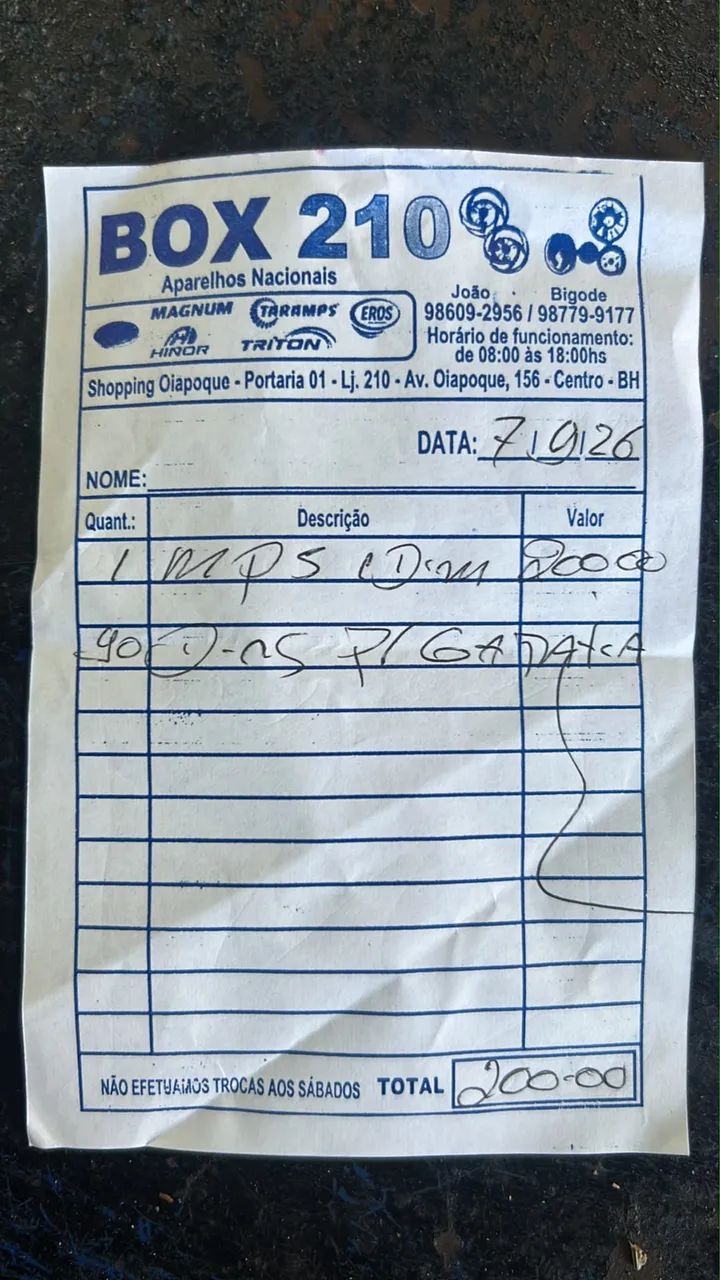 BOX 210
Aparelhos Nacionais
MAGNUM TARAMPS EROS
HINOR TRITON
João Bigode
98609-2956 / 98779-9177
Horário de funcionamento:
de 08:00 às 18:00hs
Shopping Oiapoque - Portaria 01 - Lj. 210 - Av. Oiapoque, 156 - Centro - BH
DATA: 7/9/26
NOME:
Quant.: Descrição Valor
1 MP5 1Dim 20000
90 P/ GARATCA
NÃO EFETUAMOS TROCAS AOS SÁBADOS TOTAL 200-00